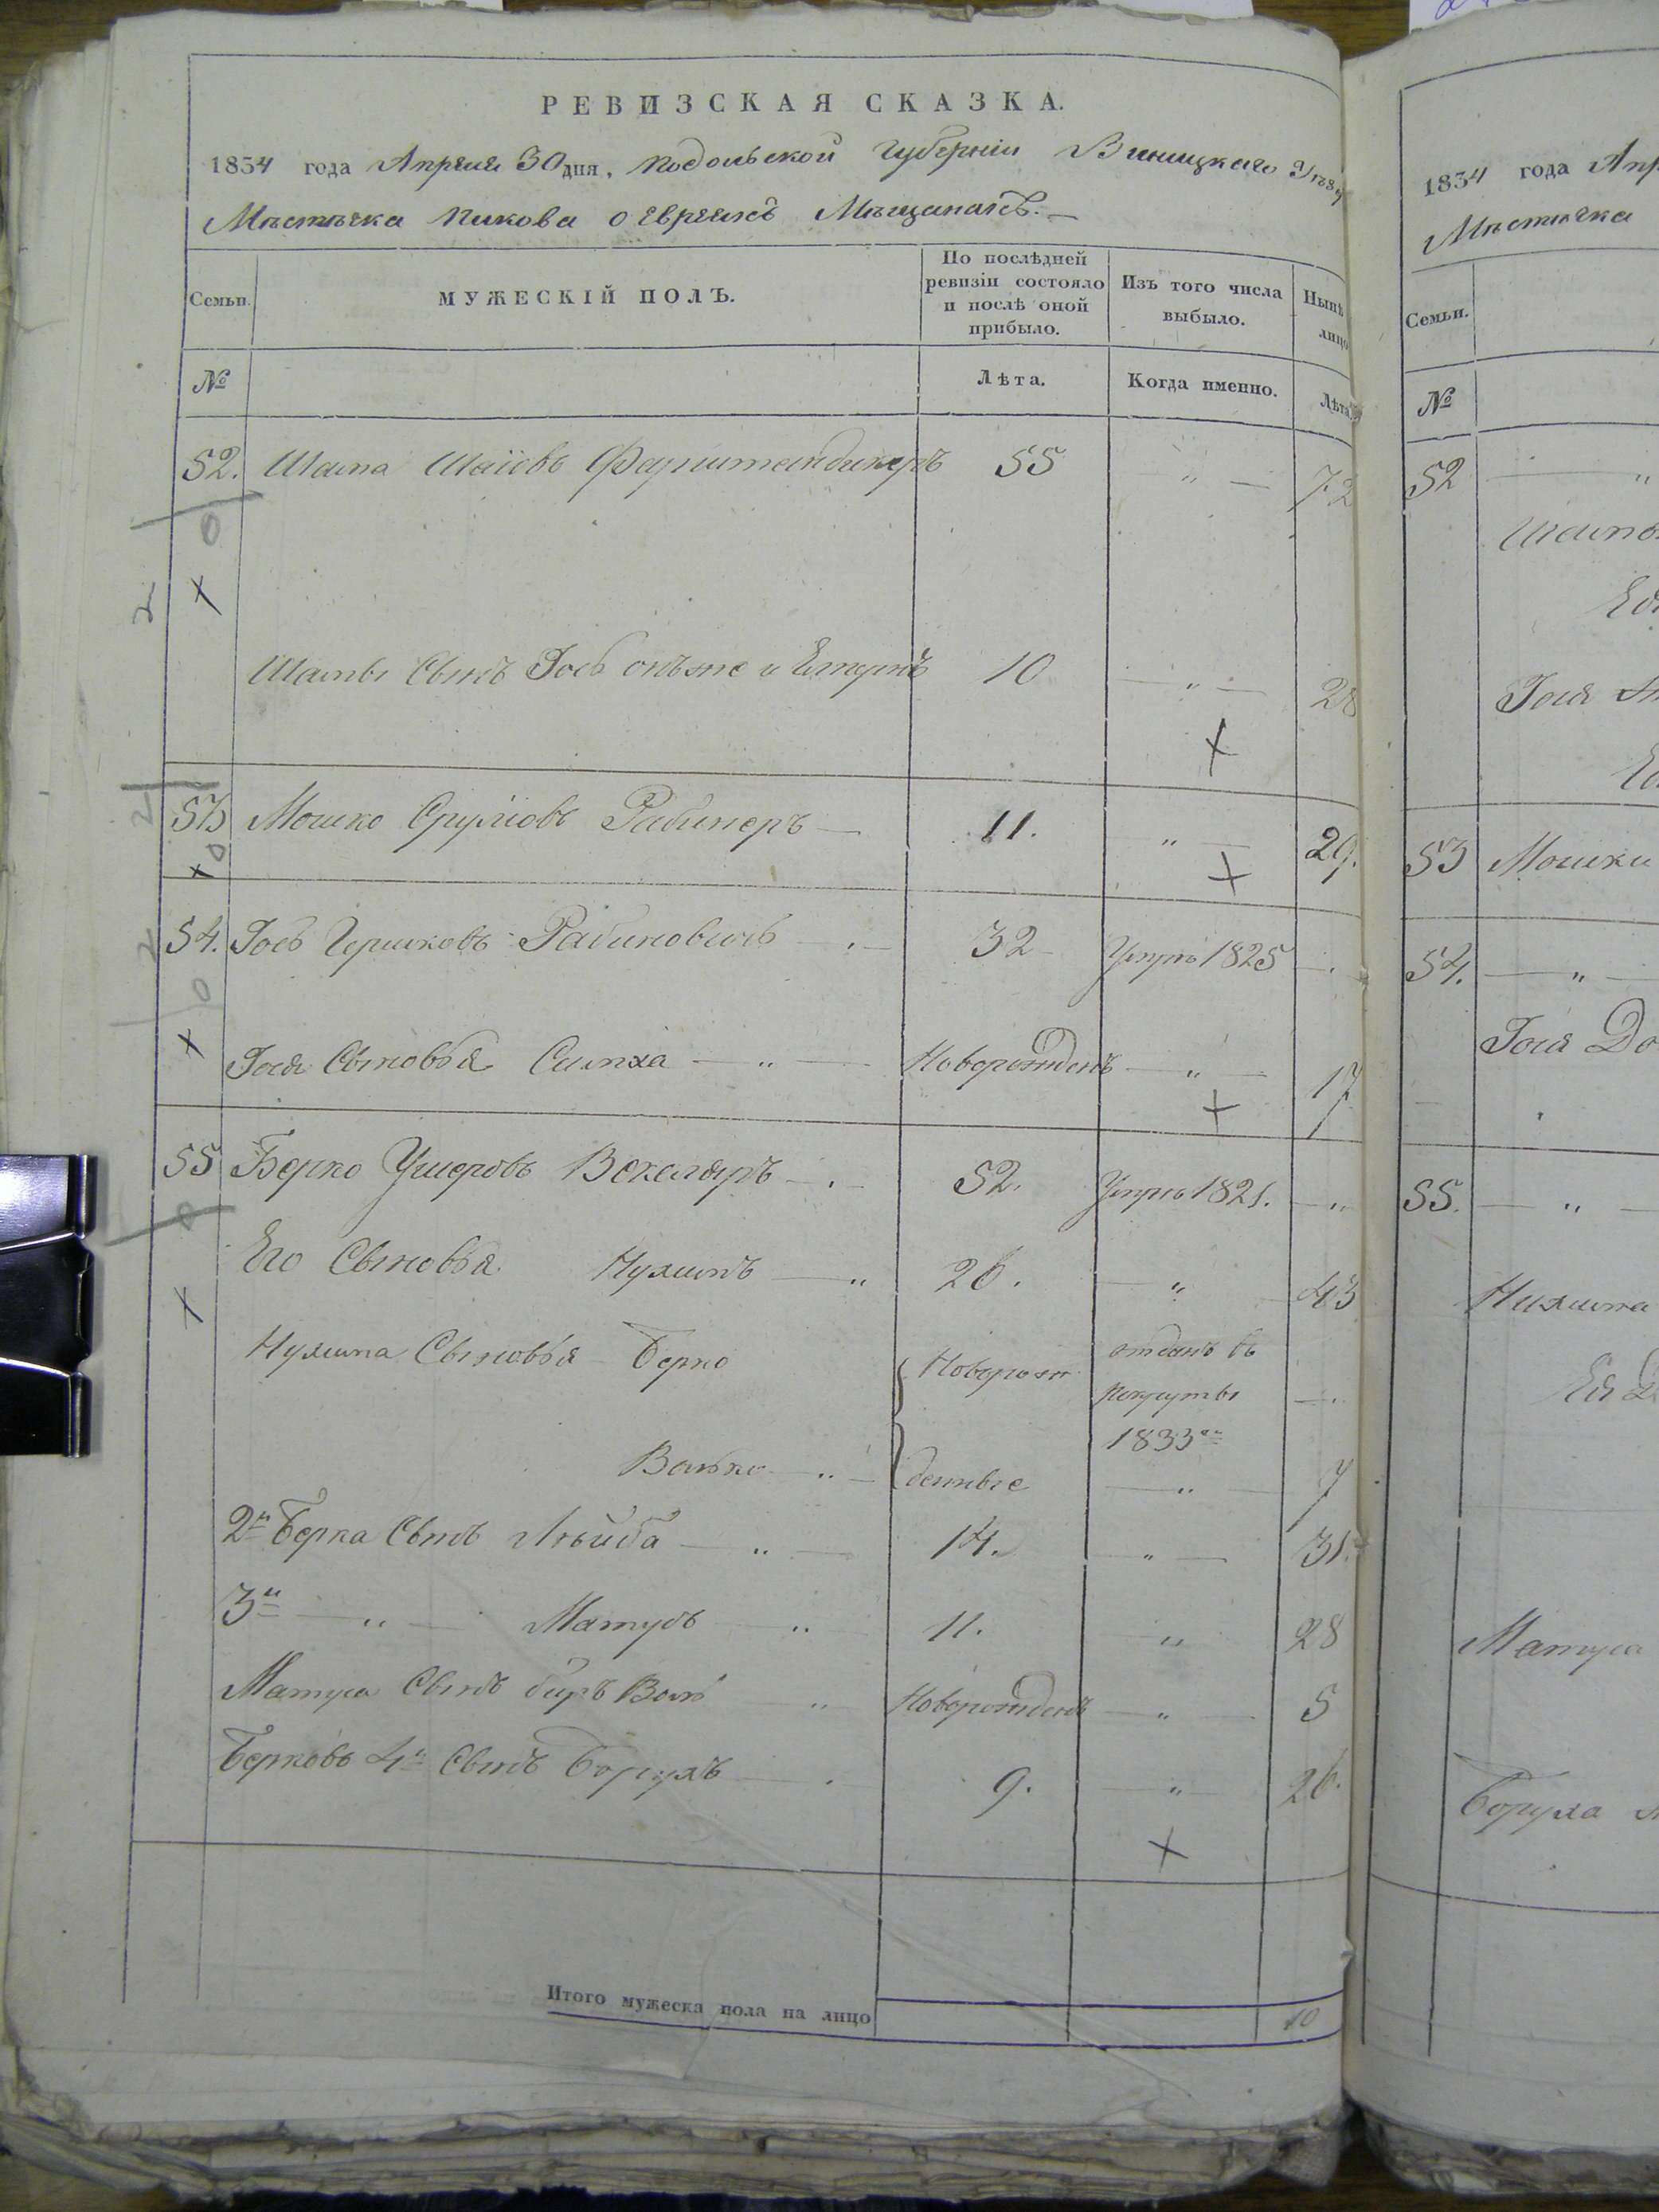 РЕВИЗСКАЯ СКАЗКА.
1834 года Апреля 30 дня, Подольской Губерніи Виницкаго
Мѣстечка Пикова о Евреяхъ Мѣщанахъ.
Семьи. МУЖЕСКІЙ ПОЛЪ. По послѣдней ревизіи состояло и послѣ оной прибыло. Изъ того числа выбыло. Нынѣ лицо
№ Лѣта. Когда именно. Лѣта
52. Шама 55 " 72
0
Х
Шамы Сынъ Іосъ онъ же и 10 " 28
Х
53 Мошко Сруліовъ Рабинеръ 11. " 29.
0
Х Х
54. Іосъ Гершковъ Рабиновичъ 32 Умръ 1825
0
Х
Іося Сыновья Симха " Новорожденъ " 17
Х
55 Берко Ушеровъ 52. Умръ 1821. "
0
Его Сыновья Нухимъ " 26. " 43
Х
Нухима Сыновья Берко Новорож отданъ въ
рекруты
1833го
Волько " денные " 7
2й Берка Сынъ Лейба " 14. " 31.
3й " Матусъ " 11. " 28
Матуса Сынъ Беръ Волъ " Новорожденъ " 5
Берковъ 4й Сынъ Борухъ 9. " 26.
Х
Итого мужеска пола на лицо 10
1834 года Апр
Мѣстечка
Семьи.
№
52 "
Іося
53 Мошки
54. "
Іося До
55. "
Нухима
Матуса
Боруха